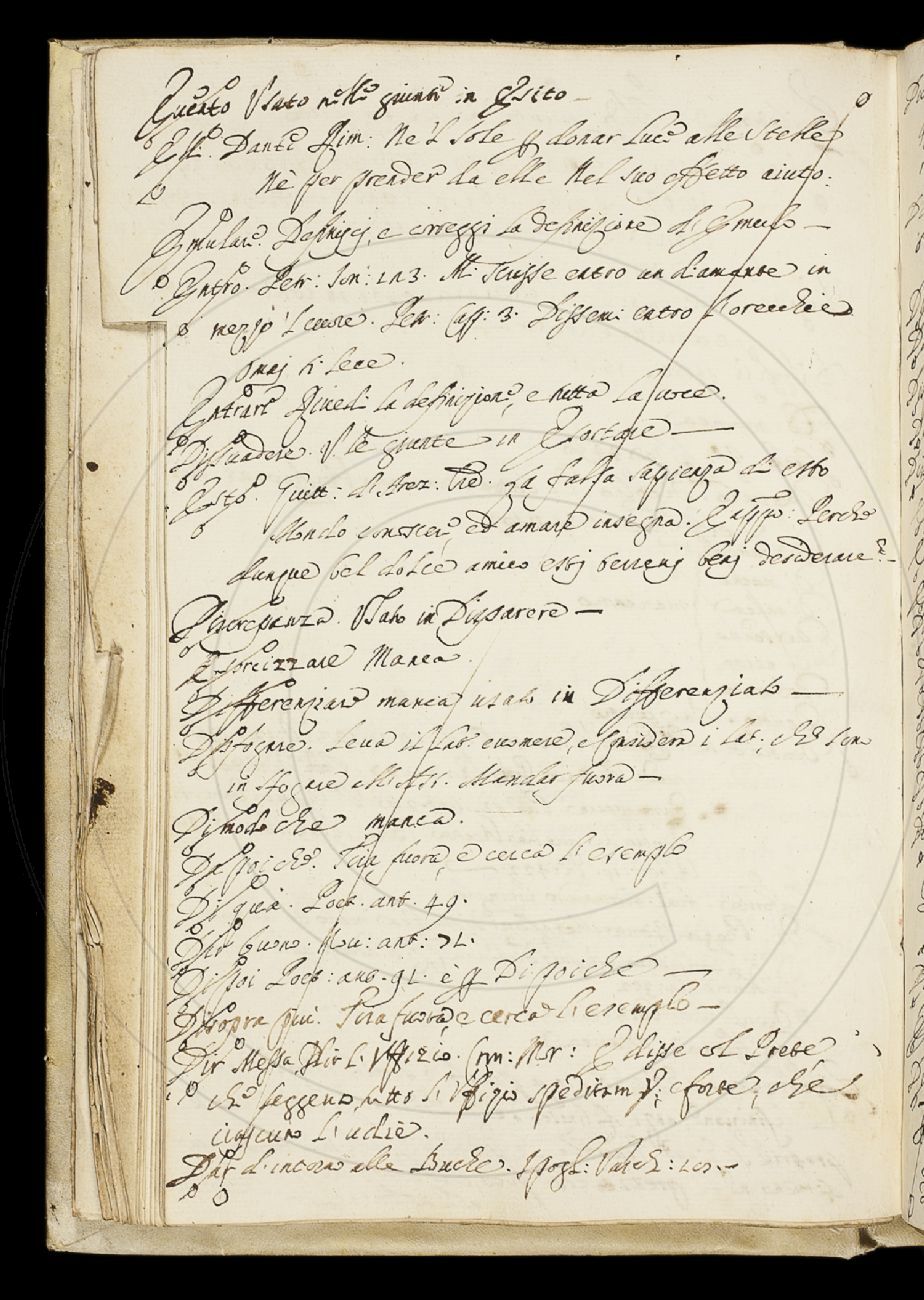 Evento Usato nelle giunte in Esito —
Egli. Dante Rim: Ne 'l sole p donar luce alle stelle
Nè per prender da elle Nel suo effetto aiuto:
Emulare. Definisci, e correggi la definizione di Emulo —
Entro. Petr: Son: 123. Mi scrisse entro un diamante in
mezzo 'l cuore. Petr: Cap: 3. Dissemi entro l'orecchie
omai ti lece.
Entrare Rivedi la definizione, e tutta la voce.
Dissuadere. V. le giunte in Esortare —
Esto. Guitt: d'Arez: la falsa sapienza di esto
Mondo conoscere, ed amare insegna. E appo: Perchè
dunque bel dolce amico esti terreni beni desiderare? —
Discrepanza. Usato in Disparere —
Esorcizzare Manca.
Differenziare manca, usato in Differenziato —
Disfogare. Leva il lat. evomere, e considera i lat: che sono
in sfogare Mandar fuora —
Dimodoche manca.
Dipoichè. Tira fuora, e cerca l'esempio
Di quà. Poet. ant. 49.
Dir buono. Nov: ant: 71.
Dipoi Poet: ant. 91. è p Dipoichè —
Disopra più. Tira fuora, e cerca l'esempio —
Dir Messa, Dir l'Uffizio. Cron: Mor: E disse col Prete
che leggeva, tutto l'Uffizio speditam e forte, che
ciascuno l'udiè.
Dar d'intorno alle Buche. Spogl: Varch: